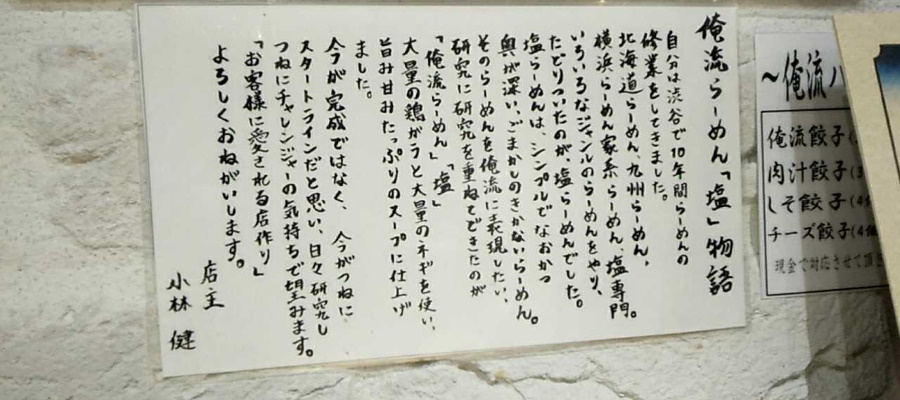 俺流らーめん「塩」物語
自分は渋谷で10年間らーめんの
修業をしてきました。
北海道らーめん、九州らーめん、
横浜らーめん家系らーめん、塩専門。
いろいろなジャンルのらーめんをやり、
たどりついたのが、塩らーめんでした。
塩らーめんは、シンプルでなおかつ
奥が深い、ごまかしのきかないらーめん。
そのらーめんを俺流に表現したい、
研究に研究を重ねてできたのが
「俺流らーめん」「塩」
大量の鶏がらと大量のネギを使い、
旨み甘みたっぷりのスープに仕上げ
ました。
今が完成ではなく、今がつねに
スタートラインだと思い、日々研究し
つねにチャレンジャーの気持ちで望みます。
「お客様に愛される店作り」
よろしくおねがいします。
店主
小林 健
〜俺流
俺流餃子
肉汁餃子
しそ餃子(4
チーズ餃子(4個
現金で対応させて頂